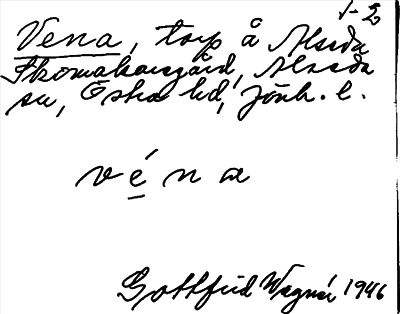 1-2
Vena, torp å Alseda
Skomakaregård, Alseda
sn, Östra hd, Jönk. l.
v é n a
Gottfrid Wagnér 1946